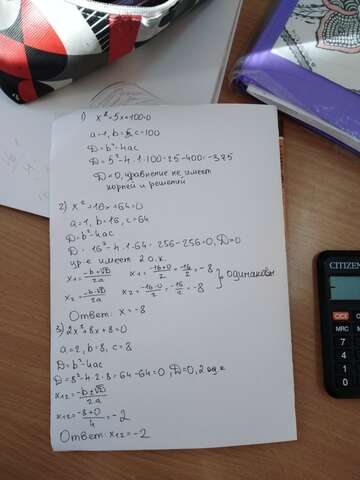 1) x²+5x+100=0
a=1, b=5, c=100
D=b²-4ac
D=5²-4·1·100=25-400=-375
D<0, уравнение не имеет
корней и решений
2) x²+16x+64=0
a=1, b=16, c=64
D=b²-4ac
D=16²-4·1·64=256-256=0, D=0
ур-е имеет 2 о.к.
x₁=-b+√D/2a x₁=-16+0/2=-16/2=-8
x₂=-b-√D/2a x₂=-16-0/2=-16/2=-8 } одинаковы
Ответ: x=-8
3) 2x²+8x+8=0
a=2, b=8, c=8
D=b²-4ac
D=8²-4·2·8=64-64=0, D=0, 2 од к
x₁,₂=-b±√D/2a
x₁,₂=-8±0/4=-2
Ответ: x₁,₂=-2
CITIZEN
OFF
MRC
7
4
1
0